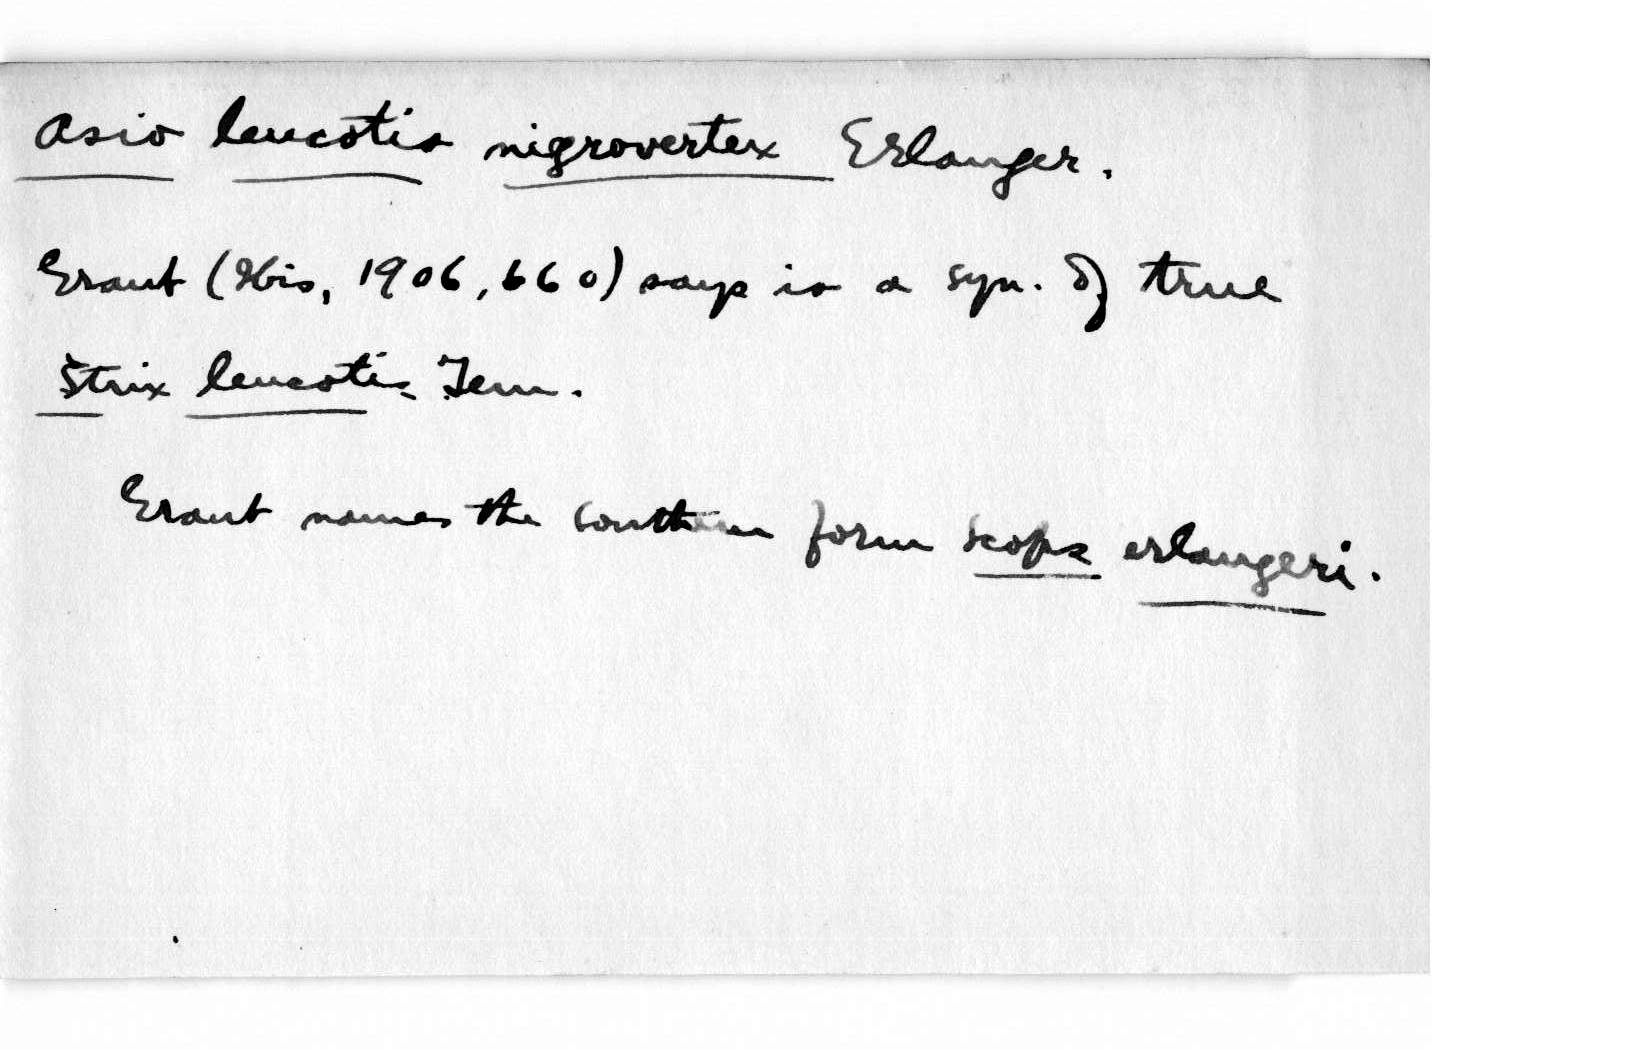 Asio leucotis nigrovertex Erlanger.
Grant (Ibis, 1906, 660) says is a syn. of true
Strix leucotis Tem.
Grant names the southern form Scops erlangeri.